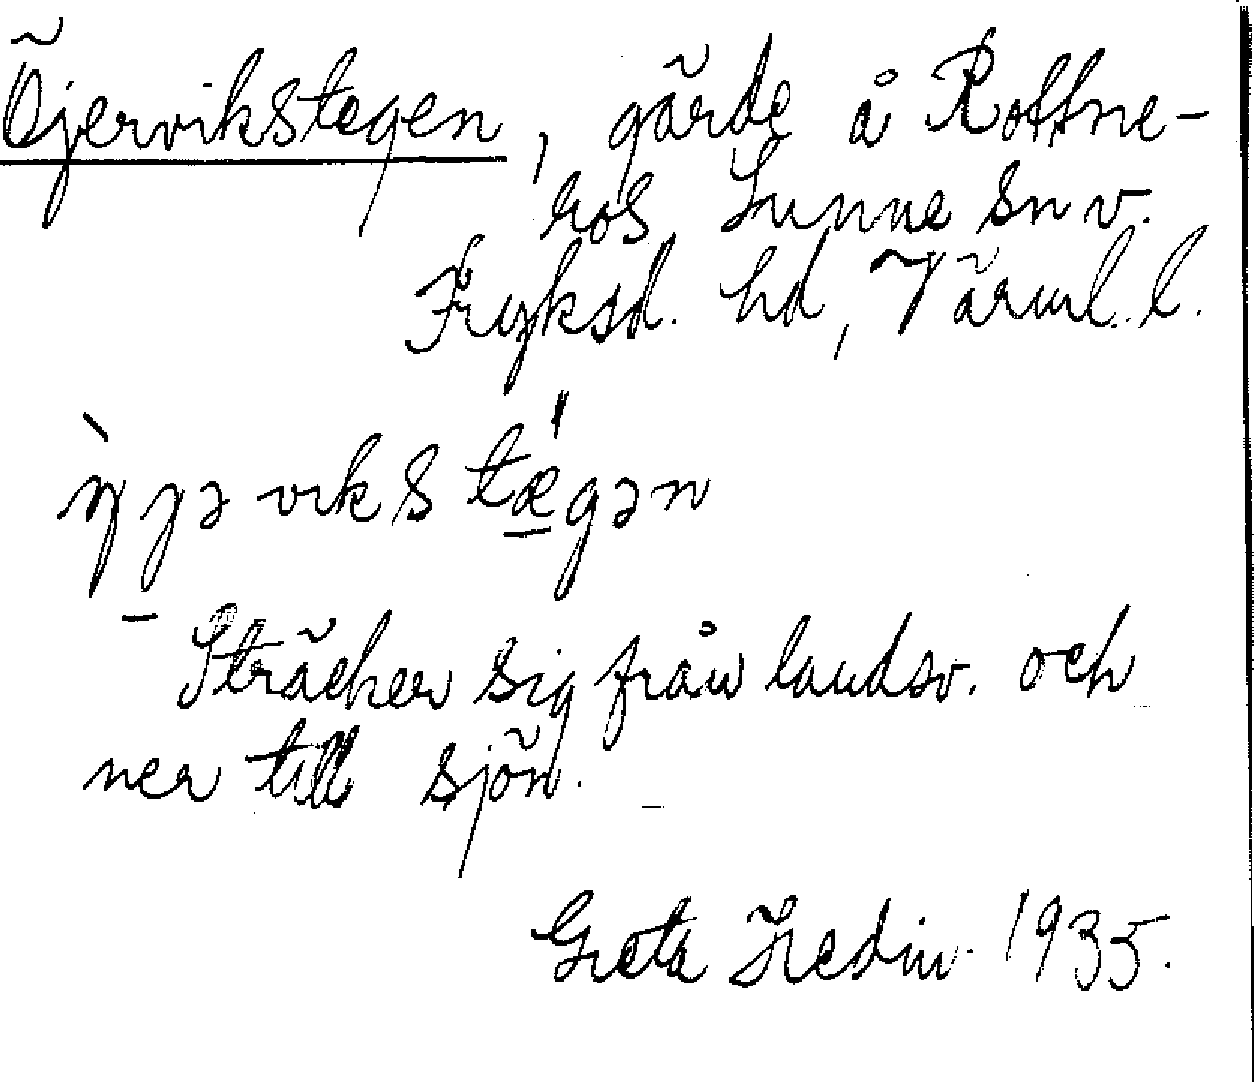 Öjervikstegen, gärde å Rottne-
ros Sunne sn v.
Fryksd. hd, Värml. l.
vikstægən
Sträcker sig från landsv. och
ner till sjön.
Greta Hedin 1935.